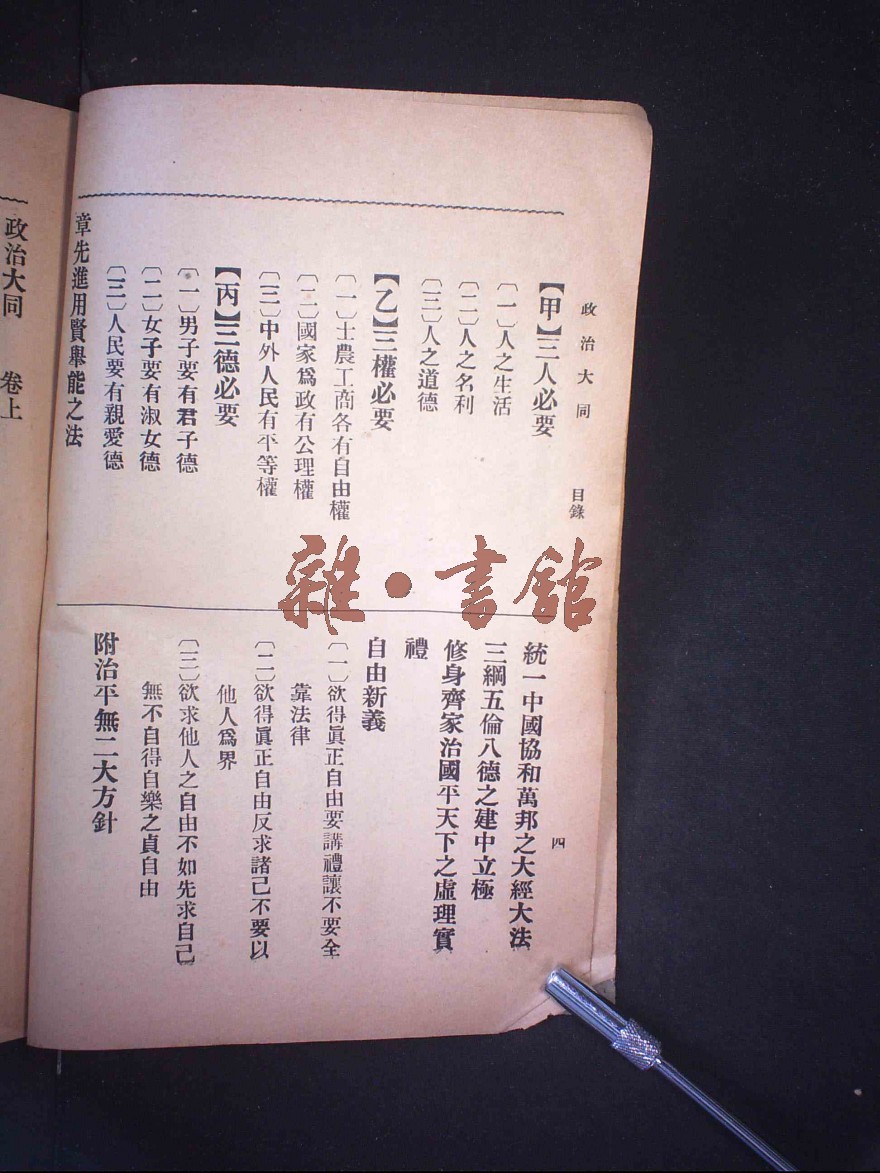 政治大同
目錄
四
【甲】三人必要
〔一〕人之生活
〔二〕人之名利
〔三〕人之道德
【乙】三權必要
〔一〕士農工商各有自由權
〔二〕國家爲政有公理權
〔三〕中外人民有平等權
【丙】三德必要
〔一〕男子要有君子德
〔二〕女子要有淑女德
〔三〕人民要有親愛德
章先進用賢舉能之法
統一中國協和萬邦之大經大法
三綱五倫八德之建中立極
修身齊家治國平天下之虛理實
禮
自由新義
〔一〕欲得眞正自由要講禮讓不要全
靠法律
〔二〕欲得眞正自由反求諸己不要以
他人爲界
〔三〕欲求他人之自由不如先求自己
無不自得自樂之貞自由
附治平無二大方針
政治大同 卷上
雜·書館